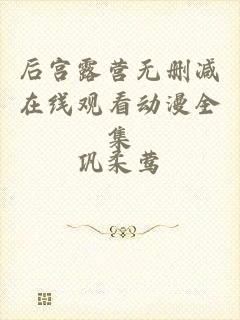 后宫露营无删减
在线观看动漫全
集
巩柔莺